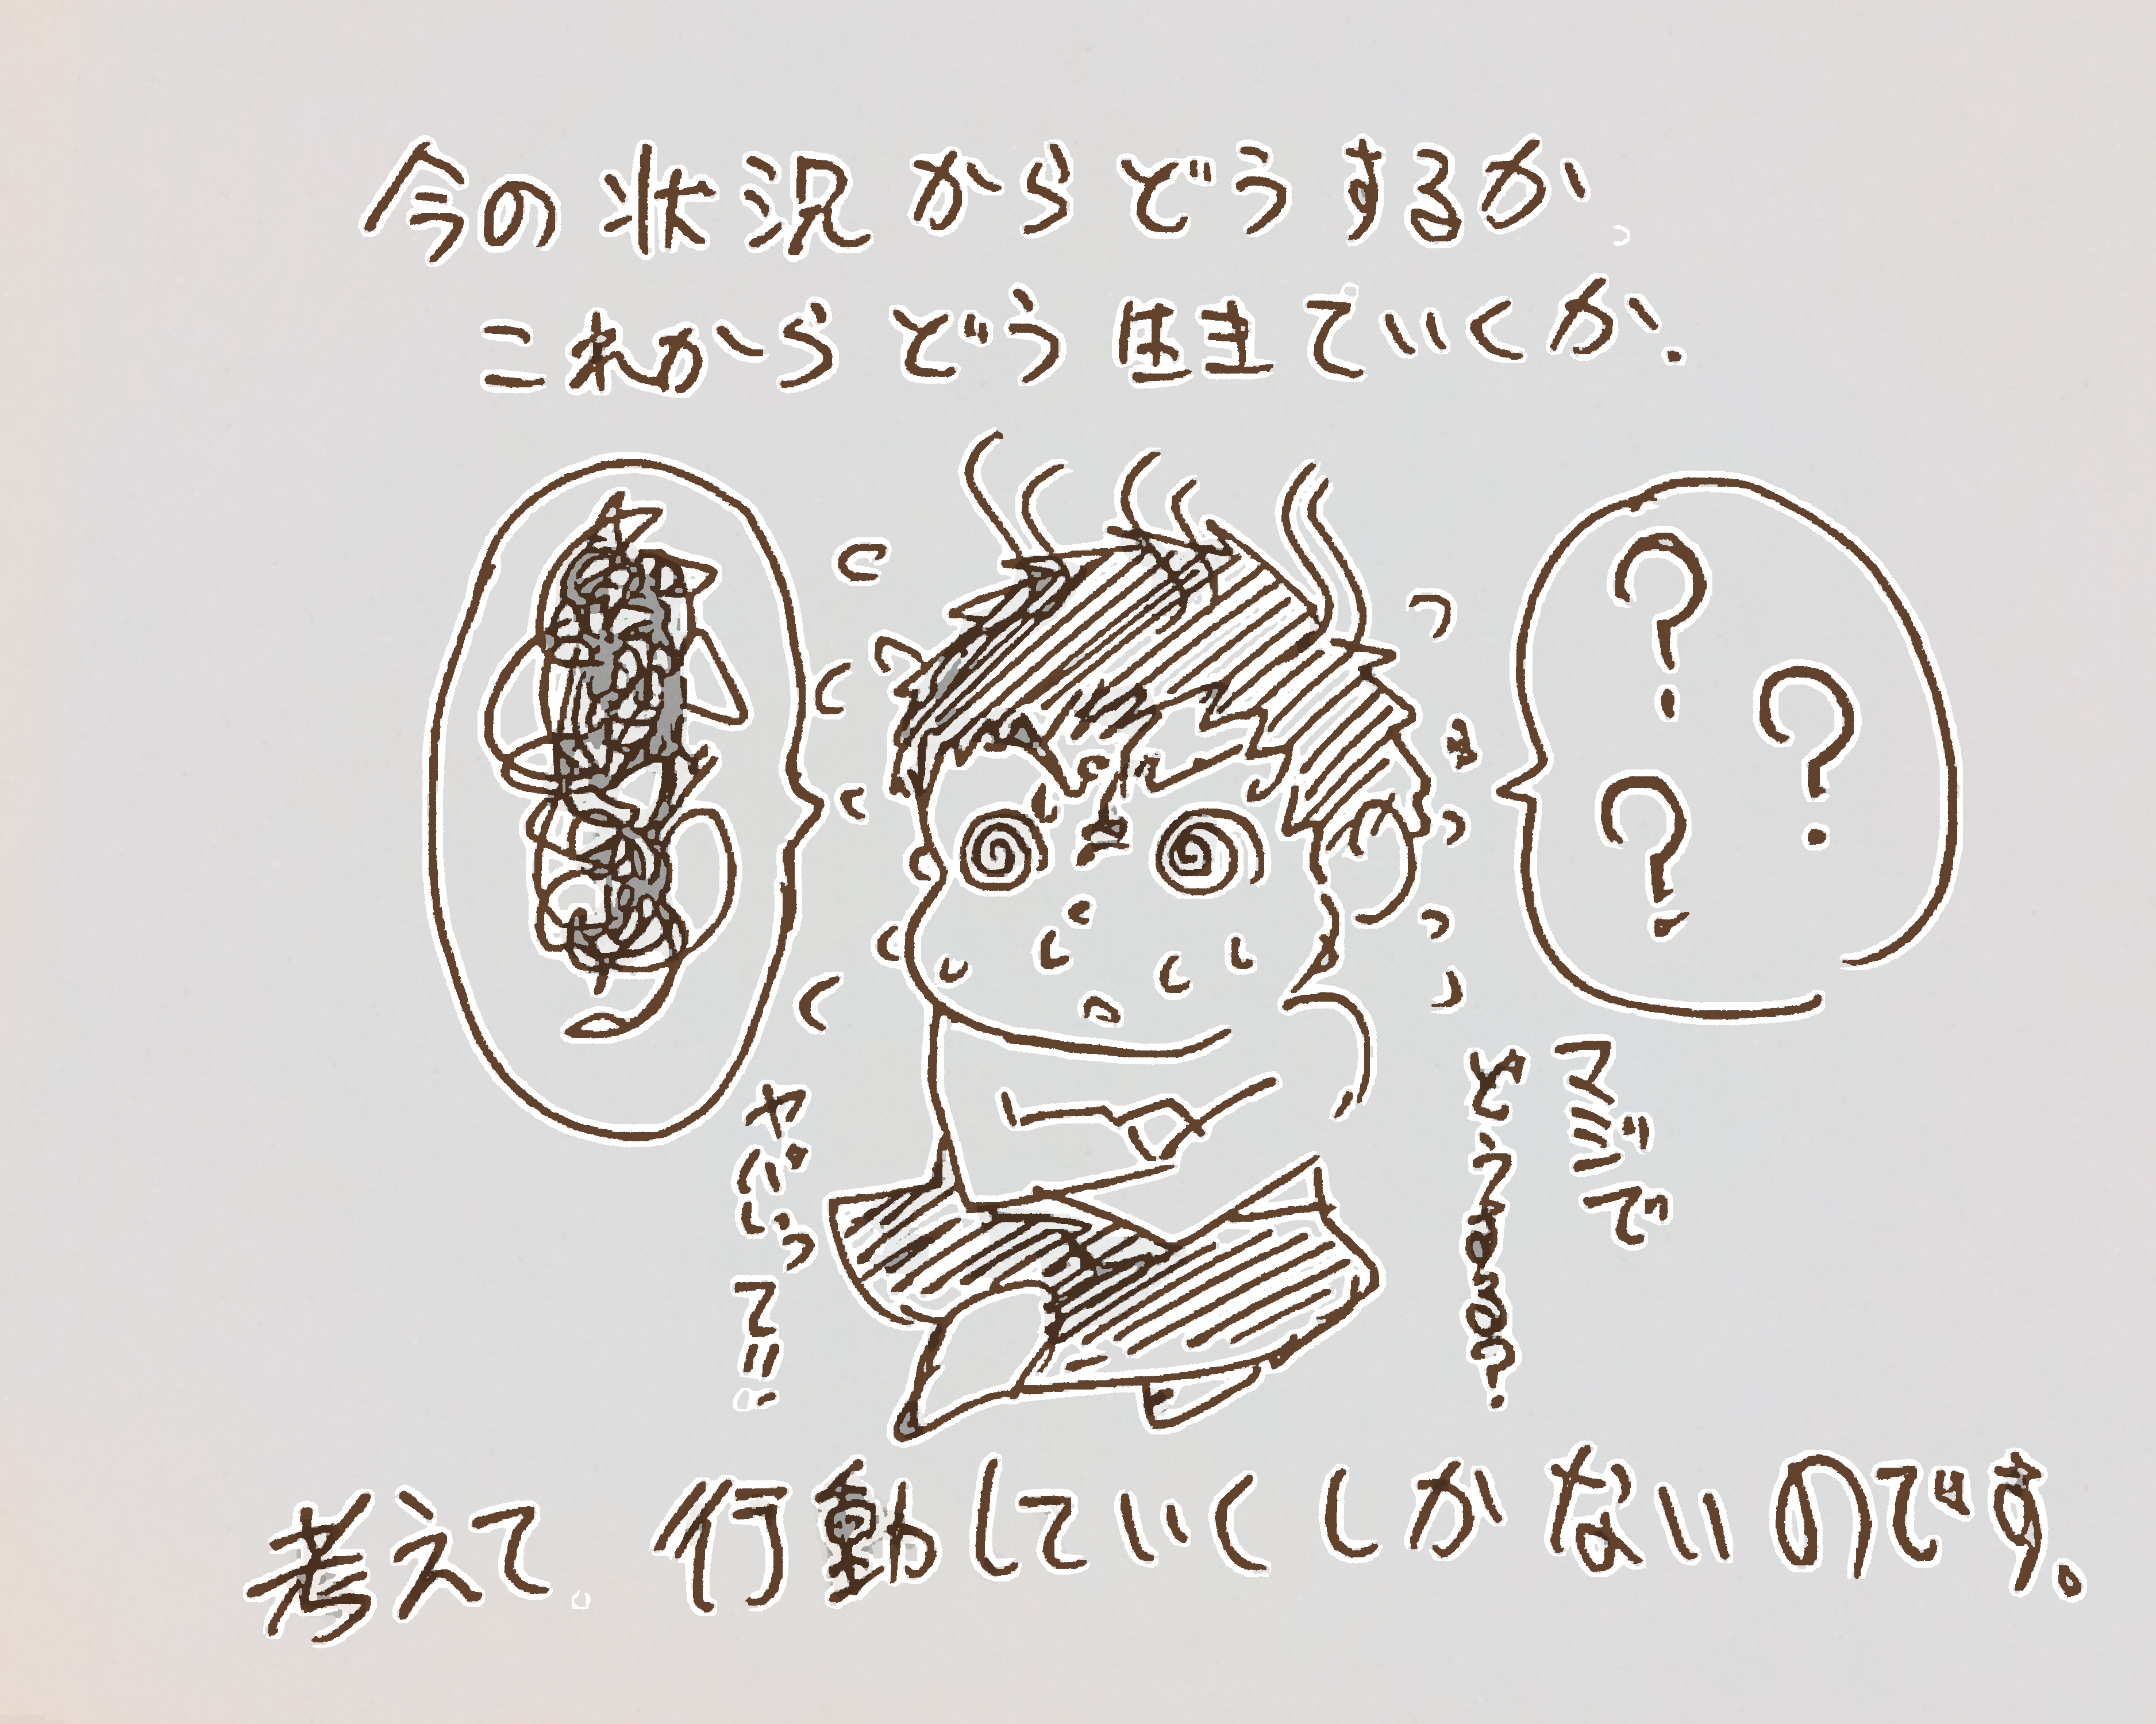 今の状況からどうするか、
これからどう住まていくか。
?
?
?
マジで
どうする?
やばいって!!
考えて、行動していくしかないのです。